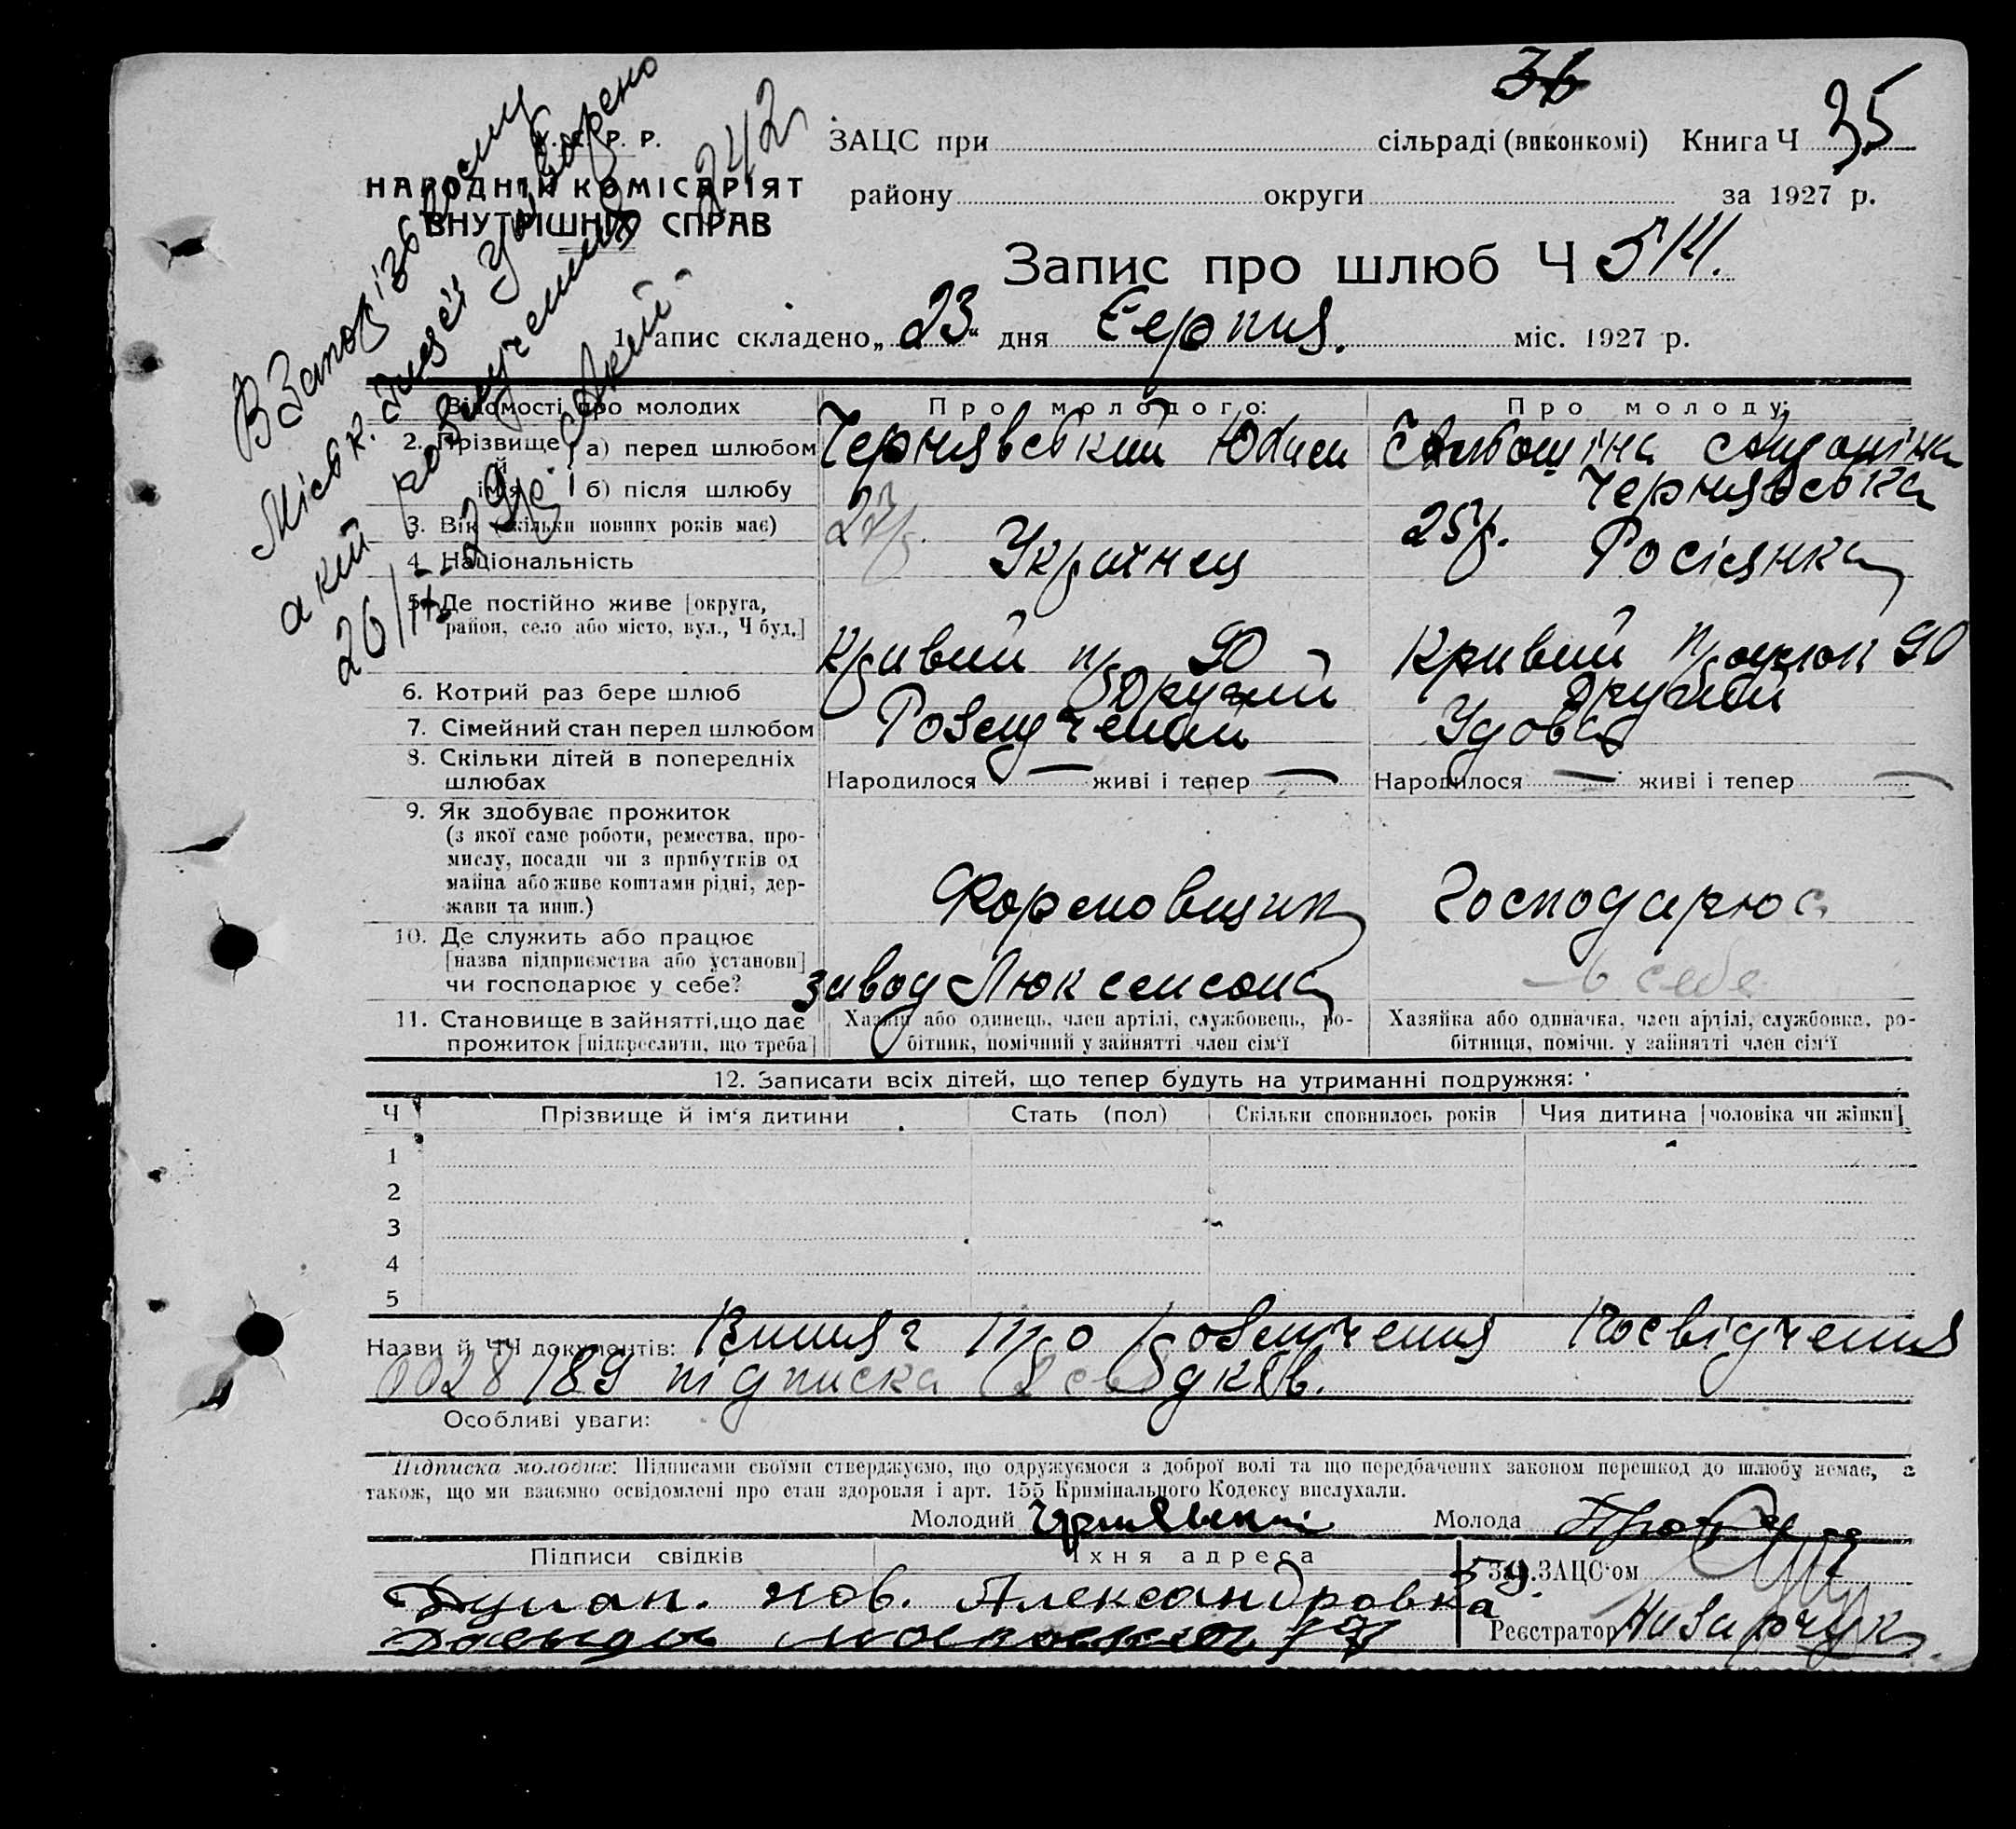 36
У. С. Р. Р.
НАРОДНІЙ КОМІСАРІЯТ
ВНУТРІШНІХ СПРАВ
ЗАЦС при сільраді (виконкомі) Книга Ч 35
району округи за 1927 р.
Запис про шлюб Ч 514.
1. Запис складено „23" дня Серпня. міс. 1927 р.
В Запорізькому
Міськ. Загсі утворено
акт розлучення 242
26/ 29 р.
Відомості про молодих
Про молодого:
Про молоду:
2. Прізвище й ім'я
а) перед шлюбом
Чернявський
б) після шлюбу
Чернявська
3. Вік (скільки повних років має)
27 р.
25 р.
4. Національність
Українец
Росіянка
5. Де постійно живе [округа, район, село або місто, вул., Ч буд.]
Кривий пр 90
Кривий 90
6. Котрий раз бере шлюб
Другий
Другий
7. Сімейний стан перед шлюбом
Розлучений
Удова
8. Скільки дітей в попередніх шлюбах
Народилося — живі і тепер —
Народилося — живі і тепер —
9. Як здобуває прожиток
(з якої саме роботи, ремества, про-
мислу, посади чи з прибутків од
майна або живе коштами рідні, дер-
жави та инш.)
Формовщик
Господарює
10. Де служить або працює
[назва підприємства або установи]
чи господарює у себе?
завод
в себе
11. Становище в зайнятті, що дає
прожиток [підкреслити, що треба]
Хазяїн або одинець, член артілі, службовець, ро-
бітник, помічний у зайнятті член сім'ї
Хазяйка або одиначка, член артілі, службовка, ро-
бітниця, помічн. у зайнятті член сім'ї
12. Записати всіх дітей, що тепер будуть на утриманні подружжя:
Ч Прізвище й ім'я дитини Стать (пол) Скільки сповнилось років Чия дитина [чоловіка чи жінки]
1
2
3
4
5
Назви й ЧЧ документів: Витяг про розлучення Посвідчення
0028/89 підписка 2 свідків.
Особливі уваги:
Підписка молодих: Підписами своїми стверджуємо, що одружуємося з доброї волі та що передбачених законом перешкод до шлюбу немає, а
також, що ми взаємно освідомлені про стан здоровля і арт. 155 Кримінального Кодексу вислухали.
Молодий Чернявский Молода
Підписи свідків Їхня адреса
Зав. ЗАЦС'ом
нов. Александровка
Реєстратор Назарчук